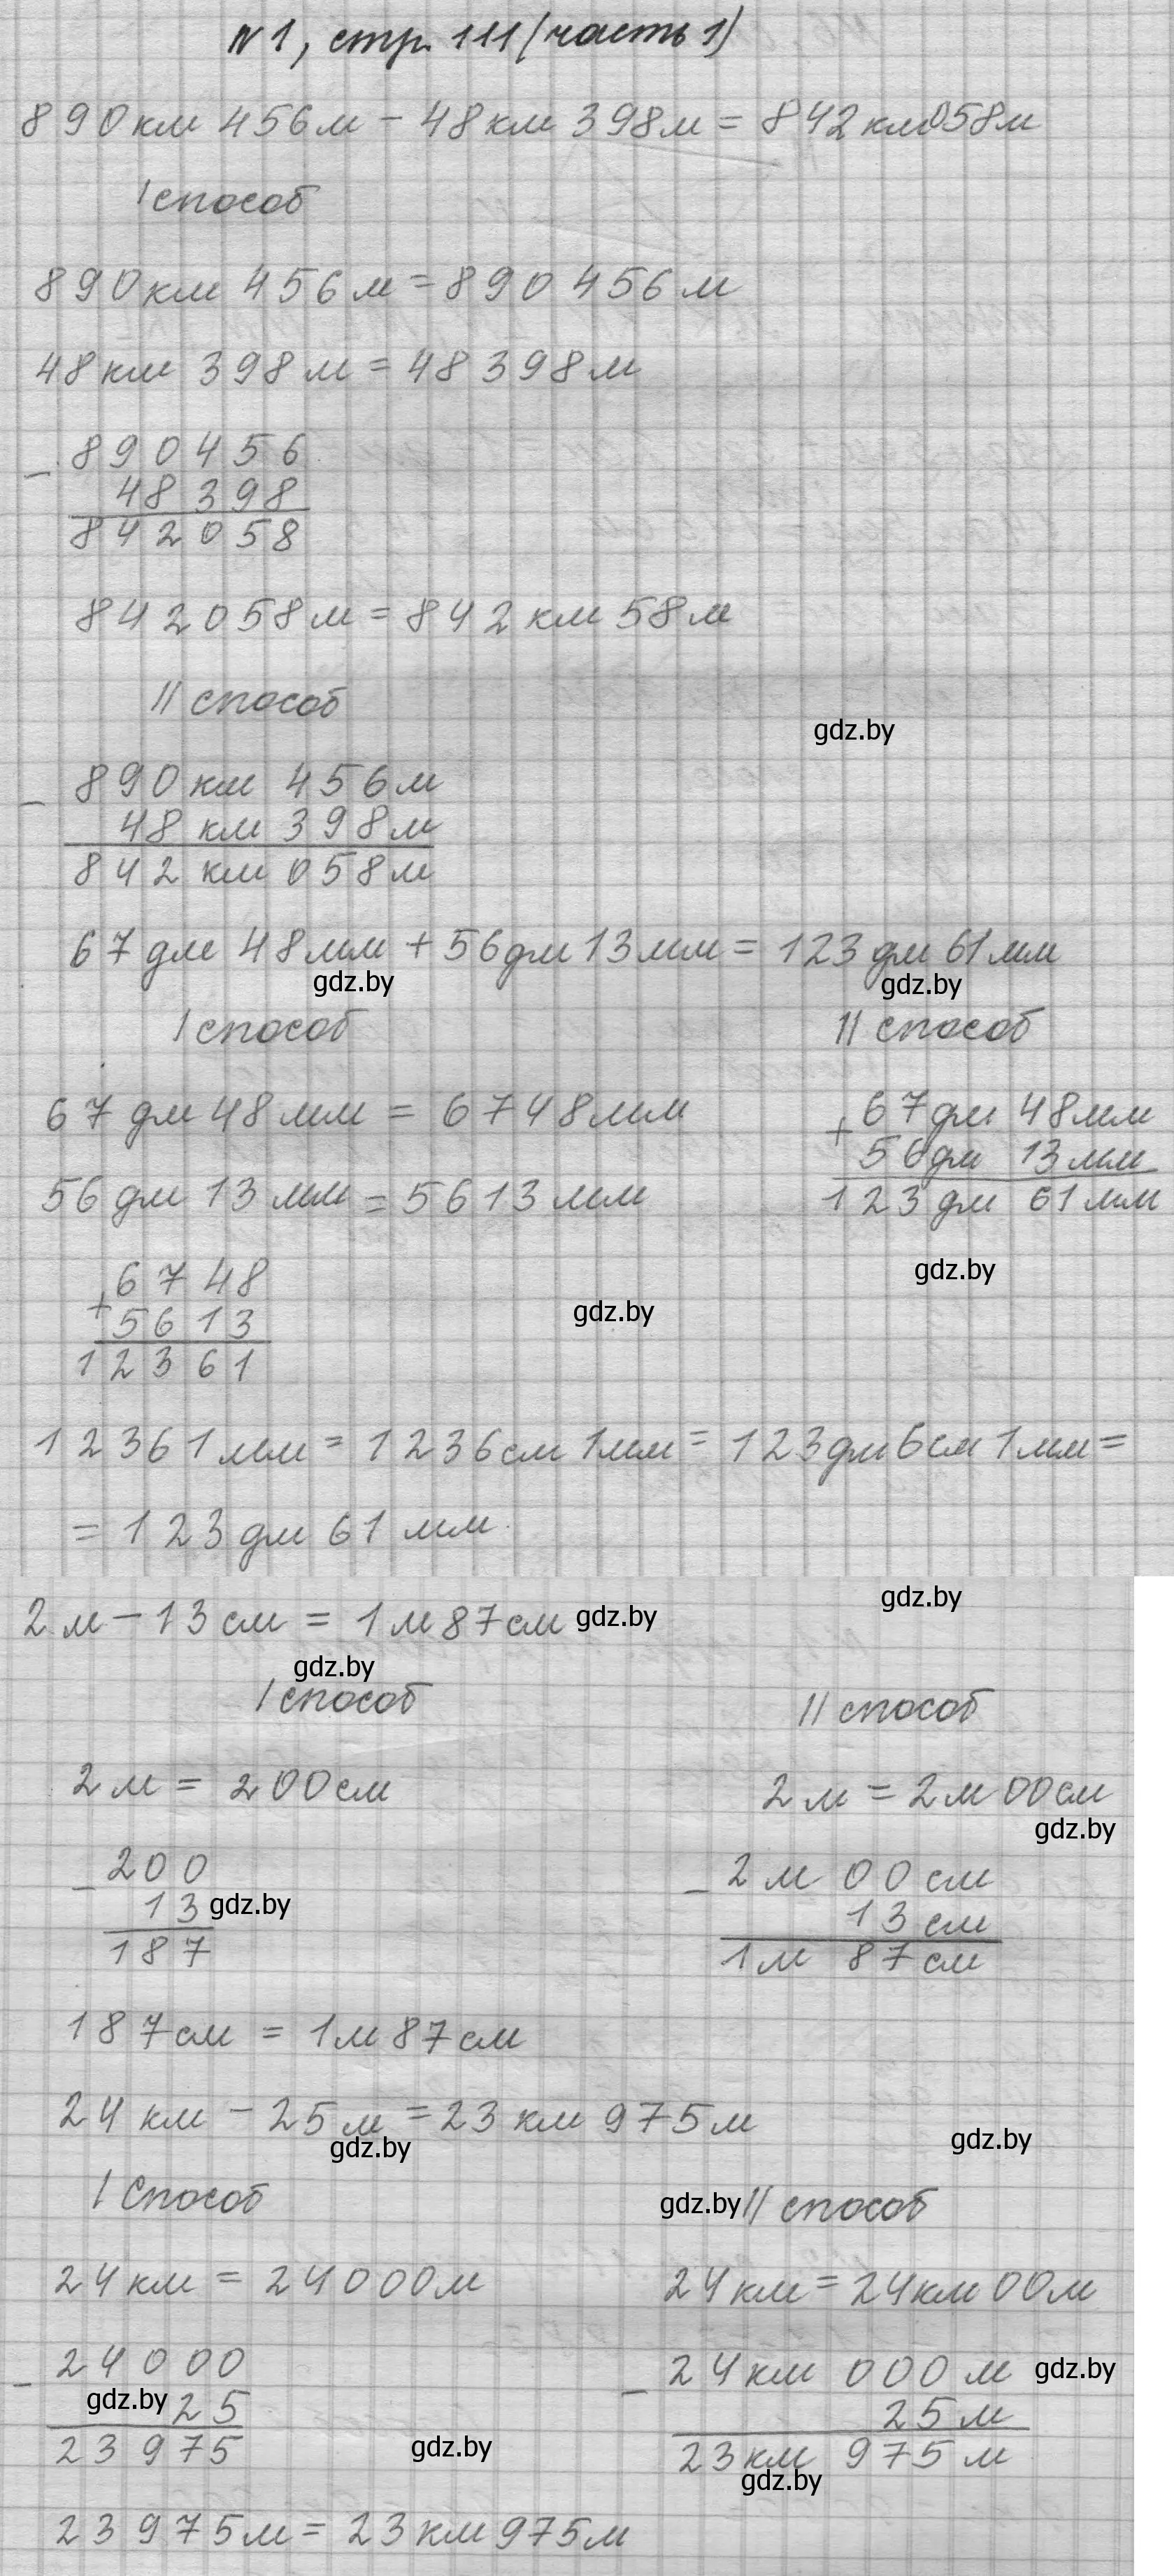 №1, стр. 111 (часть 1)
890км 456м - 48км 398м = 842км058м
I способ
890км 456м = 890456м
48км 398м = 48398м
- 890456
48398
842058
842058м = 842км 58м
II способ
gdz.by
- 890 км 456м
48 км 398м
842 км 058м
67 дм 48мм + 56дм 13мм = 123 дм 61мм
gdz.by gdz.by
I способ II способ
67 дм 48 мм = 6748мм
+ 67дм 48мм
56дм 13мм
123дм 61мм
56 дм 13 мм = 5613мм
gdz.by
+ 6748
5613
12361
gdz.by
12361мм = 1236см 1мм = 123дм 6см 1мм =
= 123 дм 61 мм.
gdz.by
2 м - 13 см = 1 м 87см gdz.by
gdz.by
I способ II способ
2 м = 200см 2 м = 2м 00см
gdz.by
- 200
13 gdz.by
187
- 2 м 00 см
13 см
1м 87 см
187см = 1м 87см
24 км - 25м = 23 км 975м
gdz.by gdz.by
I Способ gdz.by II способ
24км = 24000м 24км = 24км 00м
- 24000
gdz.by 25
23975
gdz.by
- 24км 000 м gdz.by
25 м
23км 975 м
gdz.by
23975м = 23км 975м